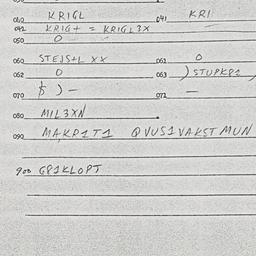 040 KRIGL 041 KRI
042 KRIG+ = KRIGL3X
050 O
060 STEJS+L XX 061 O
062 O 063 ) STUPKP1
070 $ ) - 071 -
080 MIL3XN
090 MAKP1T1 QVUS1VAKST MUN
900 G81KLOPT